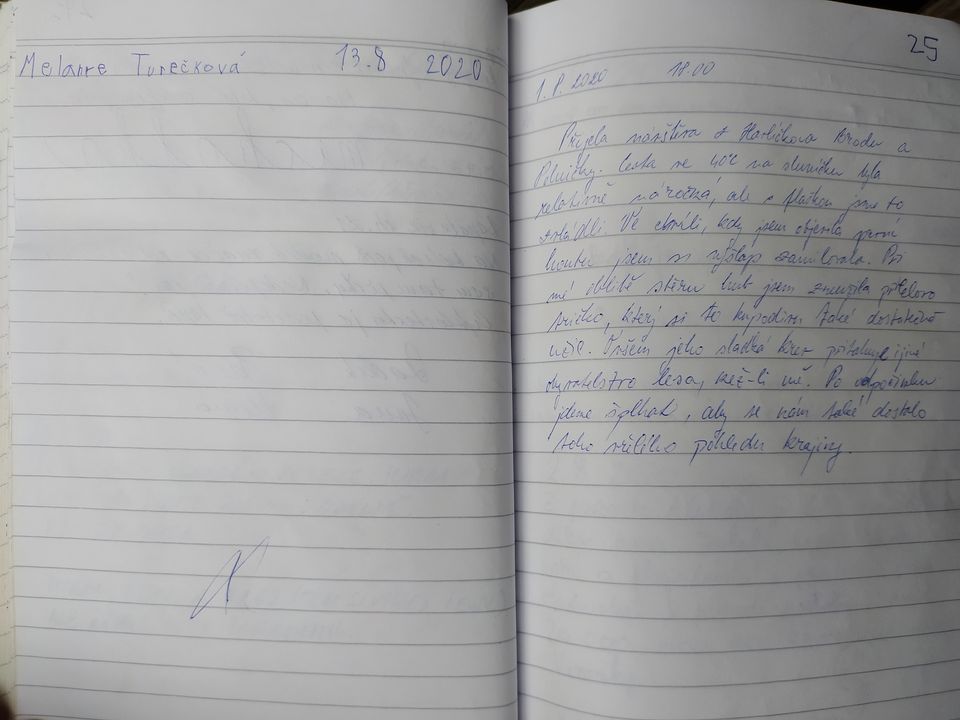 Melanie Turečková 13.8 2020
25
1. 8. 2020 18.00
Přijela návštěva z Havlíčkova Brodu a
Polničky. Cesta ve 40°C na sluníčku byla
relativně náročná, ale s flaškou jsme to
zvládli. Ve chvíli, kdy jsem objevila první
houbu jsem si výšlap zamilovala. Po
mé oblibě sběru hub jsem zneužila přítelovo
tričko, který si to kupodivu také dostatečně
užil. Ovšem jeho sladká krev přitahuje jiné
obyvatelstvo lesa, než-li mě. Po odpočinku
jdeme šplhat, aby se nám také dostalo
toho pohledu krajiny.